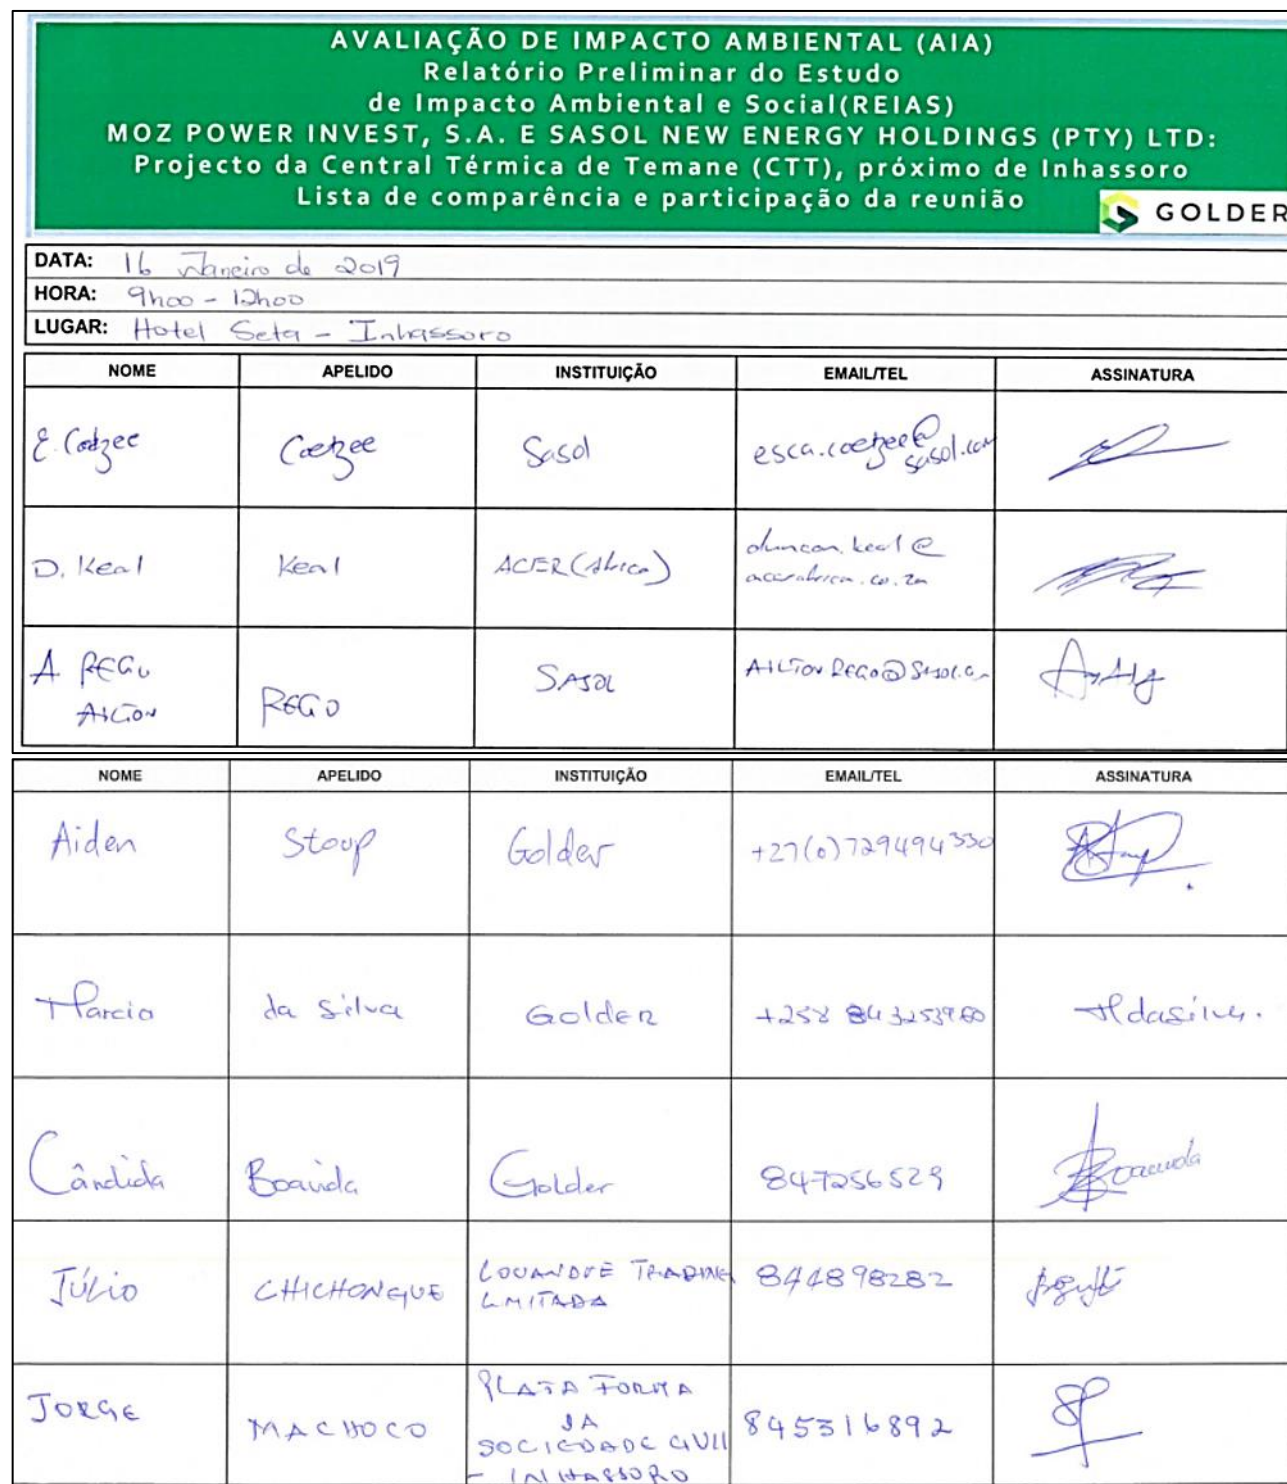 AVALIAÇÃO DE IMPACTO AMBIENTAL (AIA)
Relatório Preliminar do Estudo
de Impacto Ambiental e Social(REIAS)
MOZ POWER INVEST, S.A. E SASOL NEW ENERGY HOLDINGS (PTY) LTD:
Projecto da Central Térmica de Temane (CTT), próximo de Inhassoro
Lista de comparência e participação da reunião
GOLDER
DATA: 16 Janeiro de 2019
HORA: 9h00 - 12h00
LUGAR: Hotel Seta - Inhassoro
NOME APELIDO INSTITUIÇÃO EMAIL/TEL ASSINATURA
E. Coetzee Coetzee Sasol esca.coetzee@
sasol.com
D. Keal Keal ACER (Africa) duncan.keal@
acerafrica.co.za
A REGO
AILTON REGO SASOL
NOME APELIDO INSTITUIÇÃO EMAIL/TEL ASSINATURA
Aiden Stoup Golder +27(0)729494330
Marcia da Silva Golder +258 Mdasilva.
Cândida Boavida Golder 847256529 Boavida
JÚLIO CHICHONGUE TRADING 844898282
LIMITADA
JORGE MACHOCO PLATA FORMA 845316892
DA
SOCIEDADE CIVIL
- INHASSORO